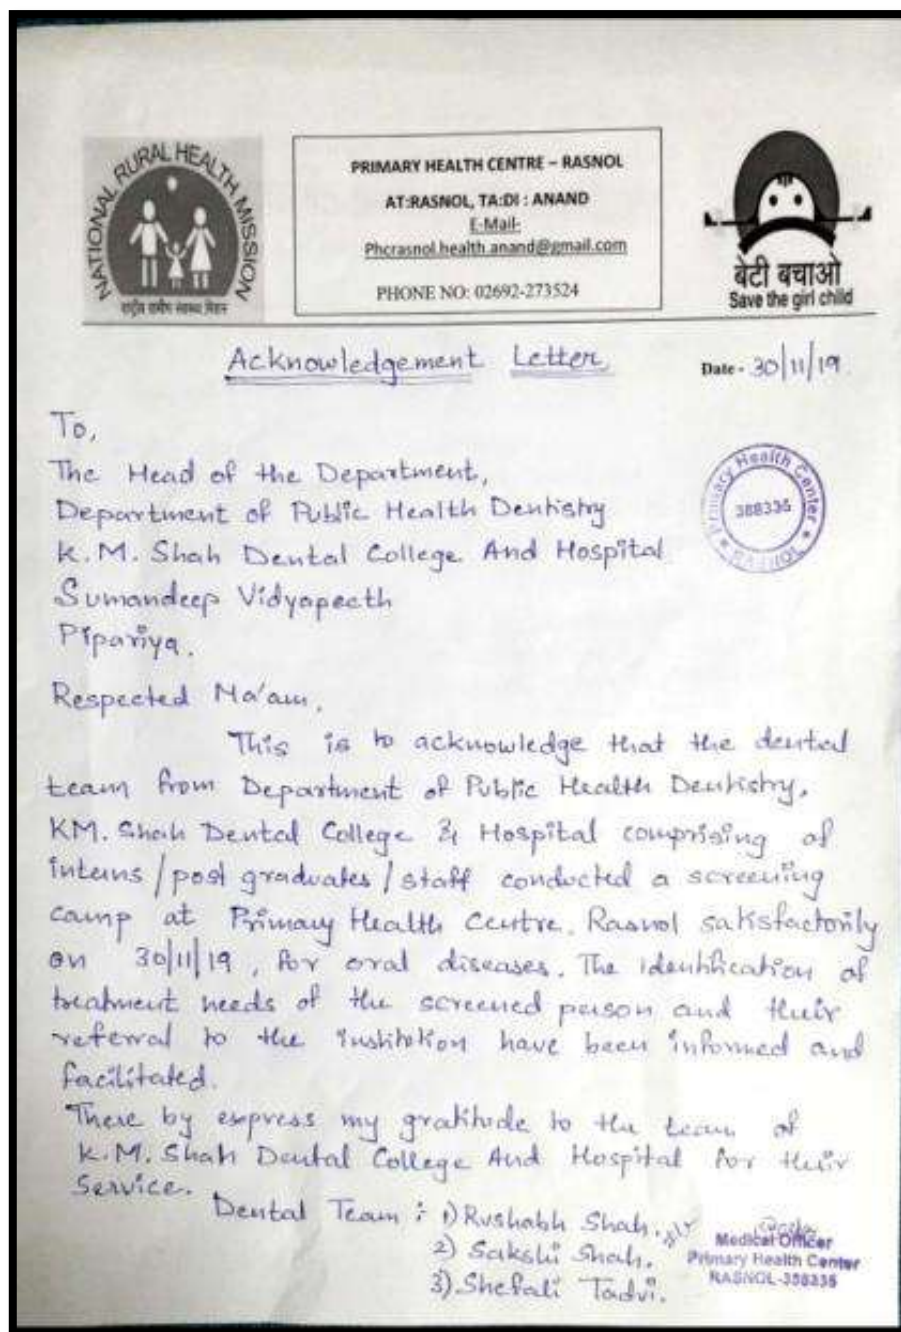 NATIONAL RURAL HEALTH MISSION
राष्ट्रीय ग्रामीण स्वास्थ्य मिशन
PRIMARY HEALTH CENTRE – RASNOL
AT:RASNOL, TA:DI : ANAND
E-Mail-
Phcrasnol.health.anand@gmail.com
PHONE NO: 02692-273524
बेटी बचाओ
Save the girl child
Acknowledgement Letter
Date - 30/11/19
To,
The Head of the Department,
Department of Public Health Dentistry
K.M. Shah Dental College And Hospital
Sumandeep Vidyapeeth
Pipariya.
Primary Health Center
388335
RASNOL
Respected Ma'am,
This is to acknowledge that the dental
team from Department of Public Health Dentistry,
KM. Shah Dental College & Hospital comprising of
interns/post graduates/staff conducted a screening
camp at Primary Health Centre, Rasnol satisfactorily
on 30/11/19, for oral diseases. The identification of
treatment needs of the screened person and their
referral to the institution have been informed and
facilitated.
There by express my gratitude to the team of
K.M. Shah Dental College And Hospital for their
Service.
Dental Team : 1) Rushabh Shah.
2) Sakshi Shah.
3) Shefali Tadvi.
Medical Officer
Primary Health Center
RASNOL-388335